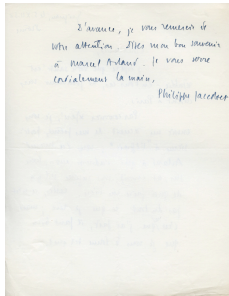 d'avance, je vous remercie de
votre attention. Dites mon bon souvenir
à Marcel Arland. Je vous serre
cordialement la main,
Philippe Jaccottet